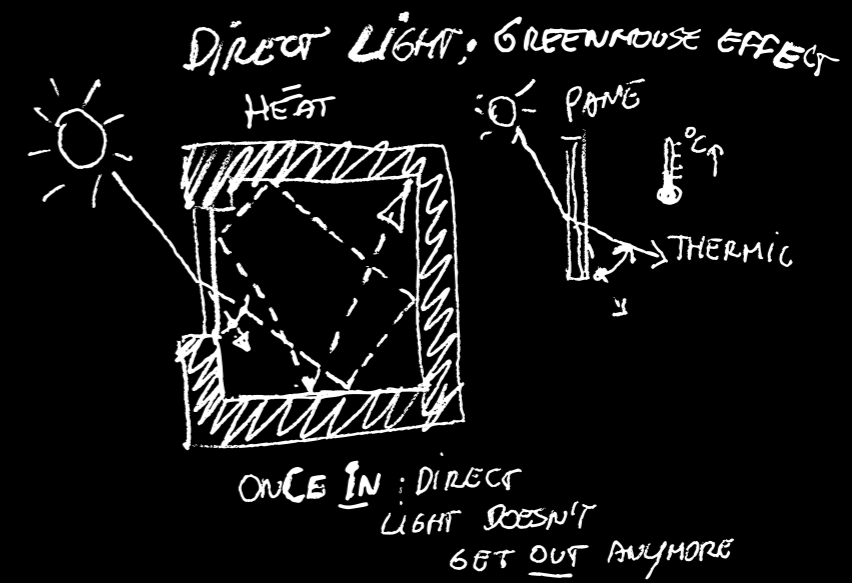 DIRECT LIGHT: GREENHOUSE EFFECT
HEAT
PANE
°C↑
THERMIC
ONCE IN : DIRECT
LIGHT DOESN'T
GET OUT ANYMORE